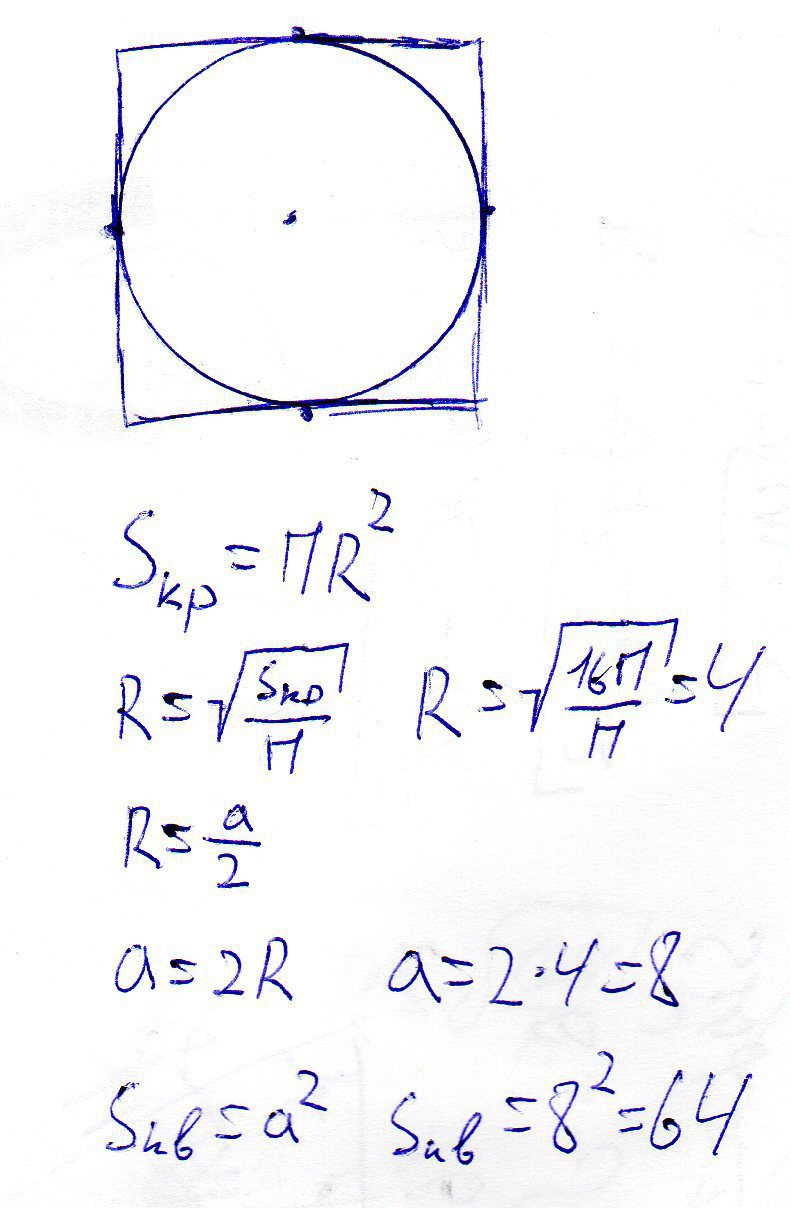 Sкр = ПR²
R = √(Sкр/П) R = √(16П/П) = 4
R = a/2
a = 2R a = 2·4 = 8
Sкв = a² Sкв = 8² = 64